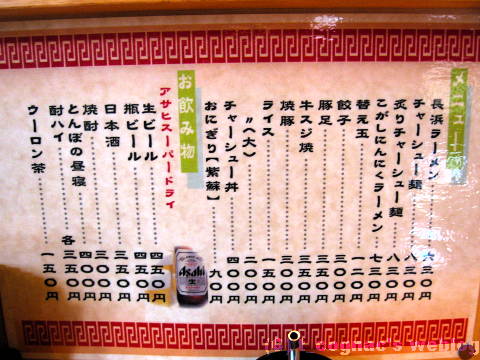 メニュー
長浜ラーメン……六三〇円
チャーシュー麺……八三〇円
炙りチャーシュー麺……八三〇円
こがしにんにくラーメン……七三〇円
替え玉……一二〇円
餃子……三〇〇円
豚足……三五〇円
牛スジ焼……三五〇円
焼豚……三〇〇円
ライス……一五〇円
〃(大)……二〇〇円
チャーシュー丼……四〇〇円
おにぎり【紫蘇】……九〇円
お飲み物
アサヒスーパードライ
生ビール……四五〇円
瓶ビール……四五〇円
日本酒……三五〇円
焼酎……三〇〇円
とんぼの昼寝……四〇〇円
酎ハイ……各三五〇円
ウーロン茶……一五〇円
Asahi
生
cognac's weblog